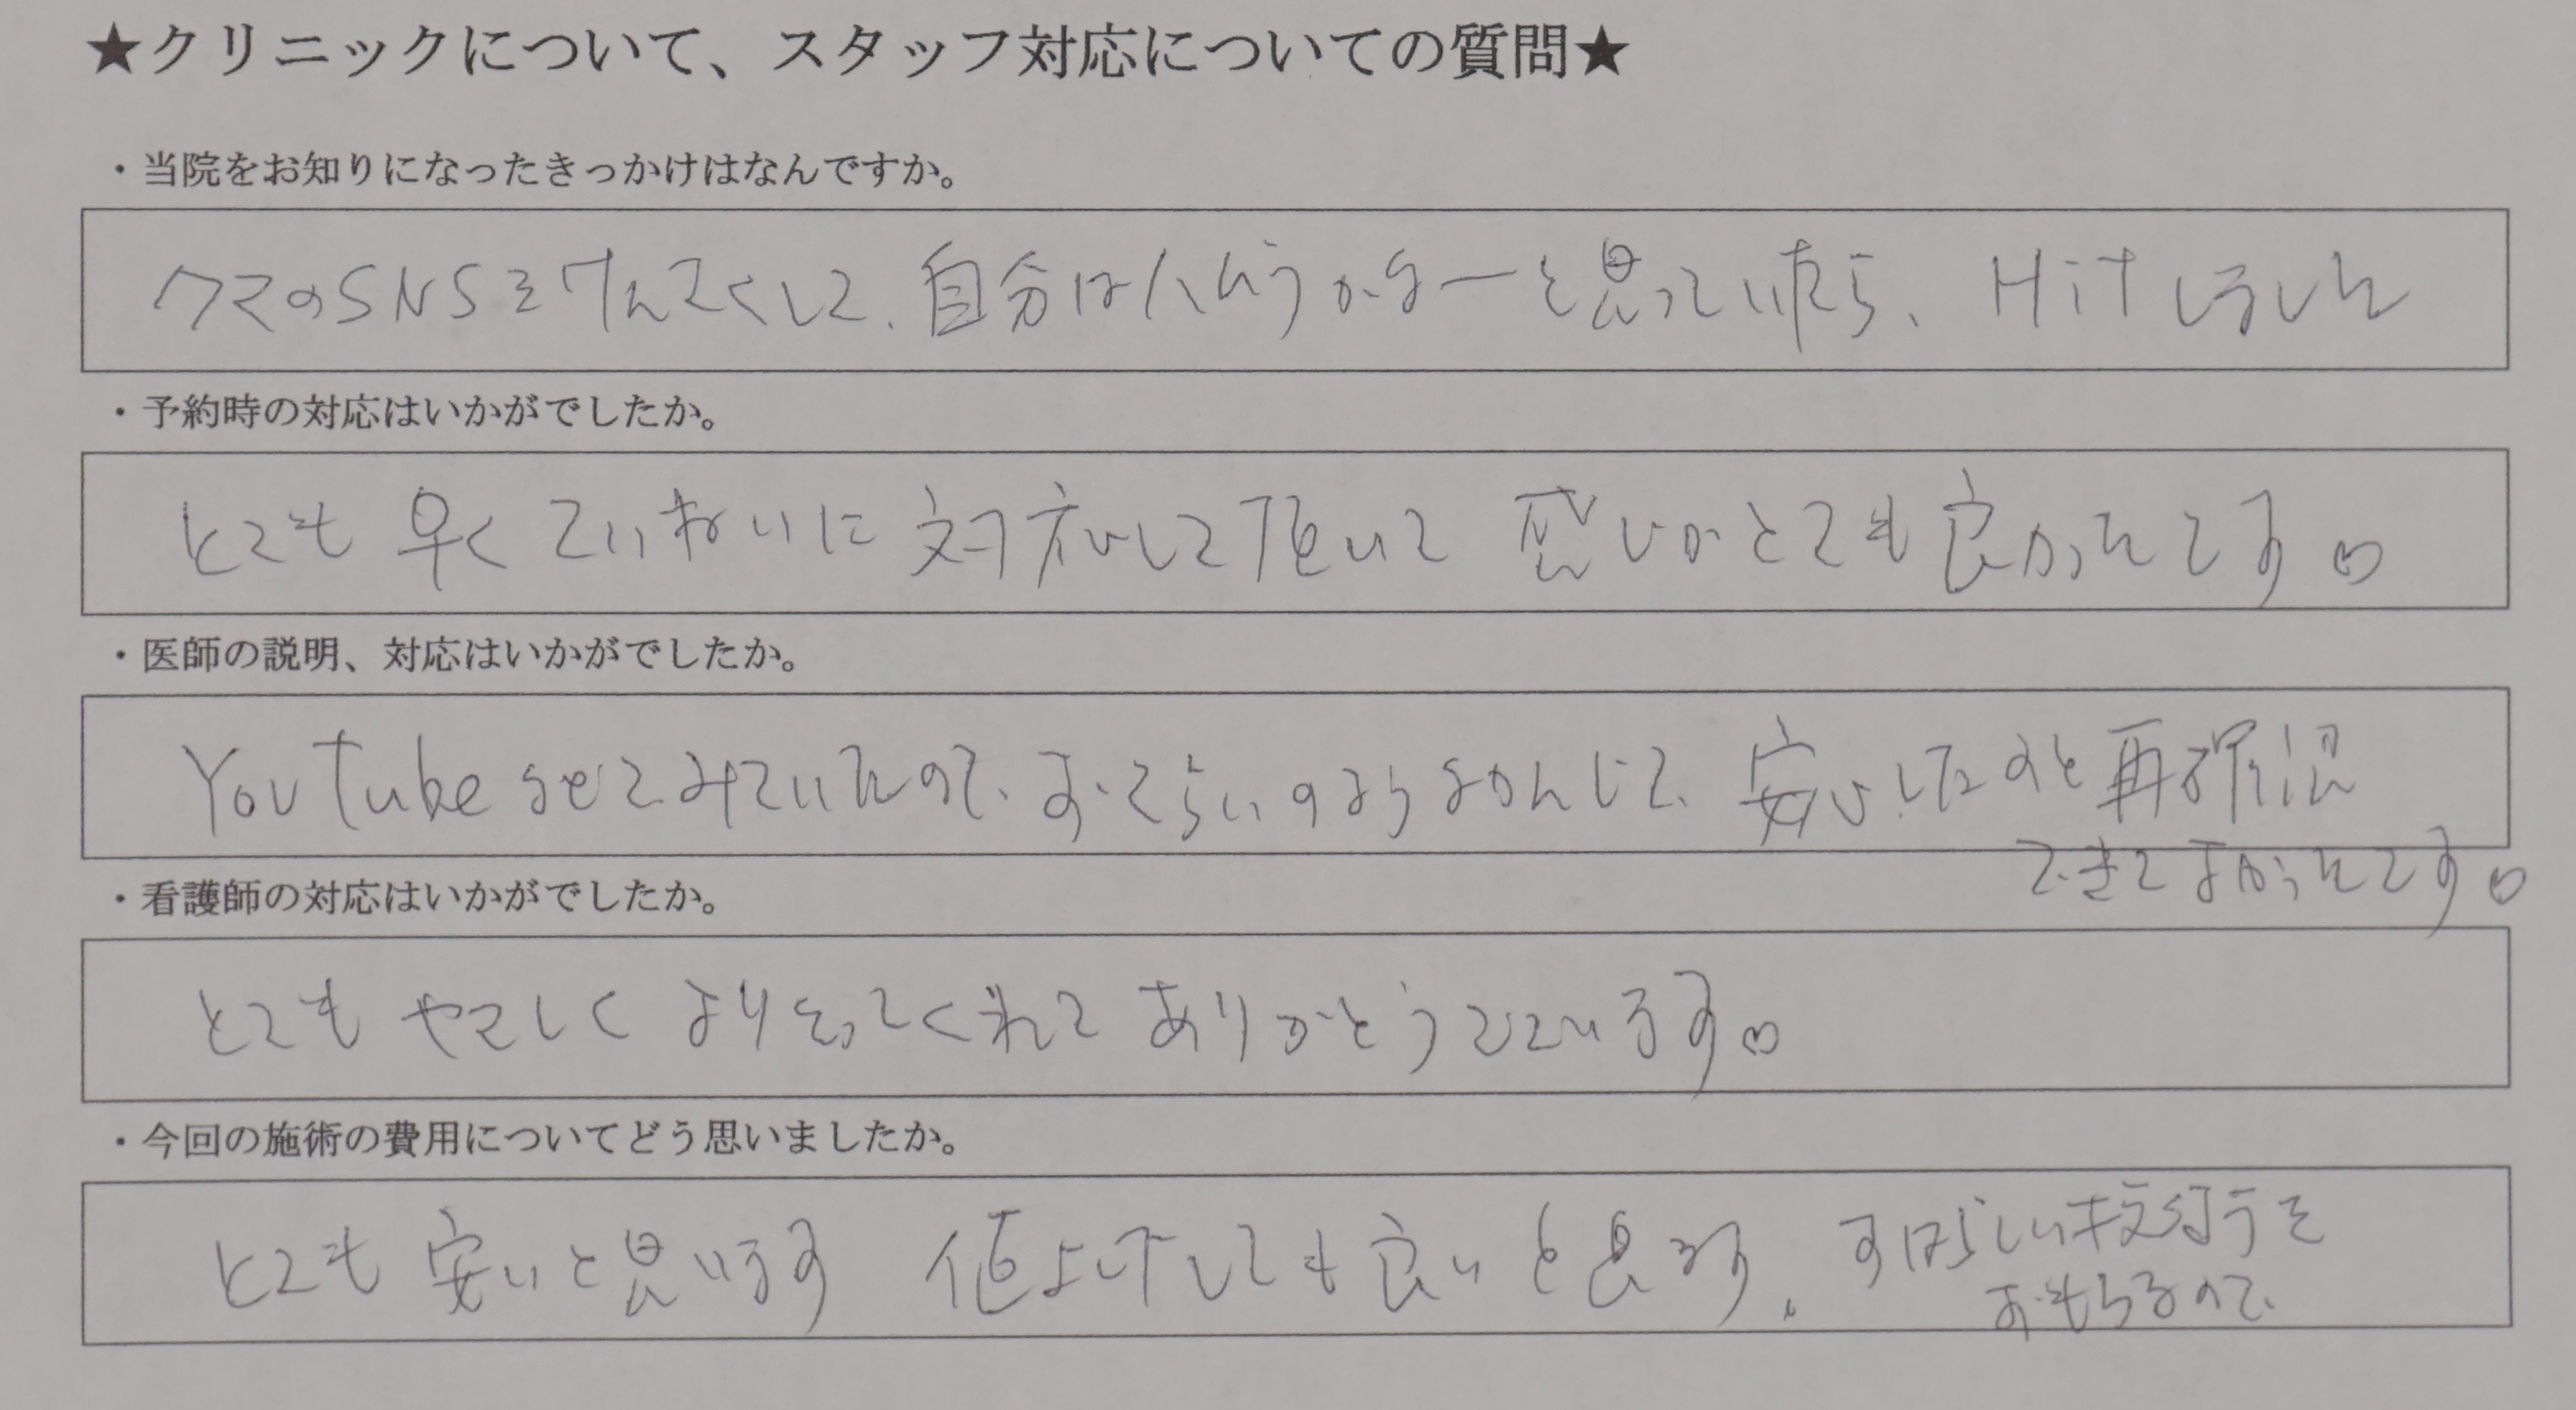 ★クリニックについて、スタッフ対応についての質問★
・当院をお知りになったきっかけはなんですか。
クマのSNSをけんさくして、自分はどうかなーと思っていたら、Hitしました
・予約時の対応はいかがでしたか。
とても早くていねいに対応して頂いて感じがとても良かったです。
・医師の説明、対応はいかがでしたか。
YouTube みていたので、おさらいのようなかんじで、安心したのと再確認
できてよかったです。
・看護師の対応はいかがでしたか。
とてもやさしくよりそってくれてありがとうございます。
・今回の施術の費用についてどう思いましたか。
とても安いと思います 値上げしても良いと思います。すばらしい技術を
おもちなので、